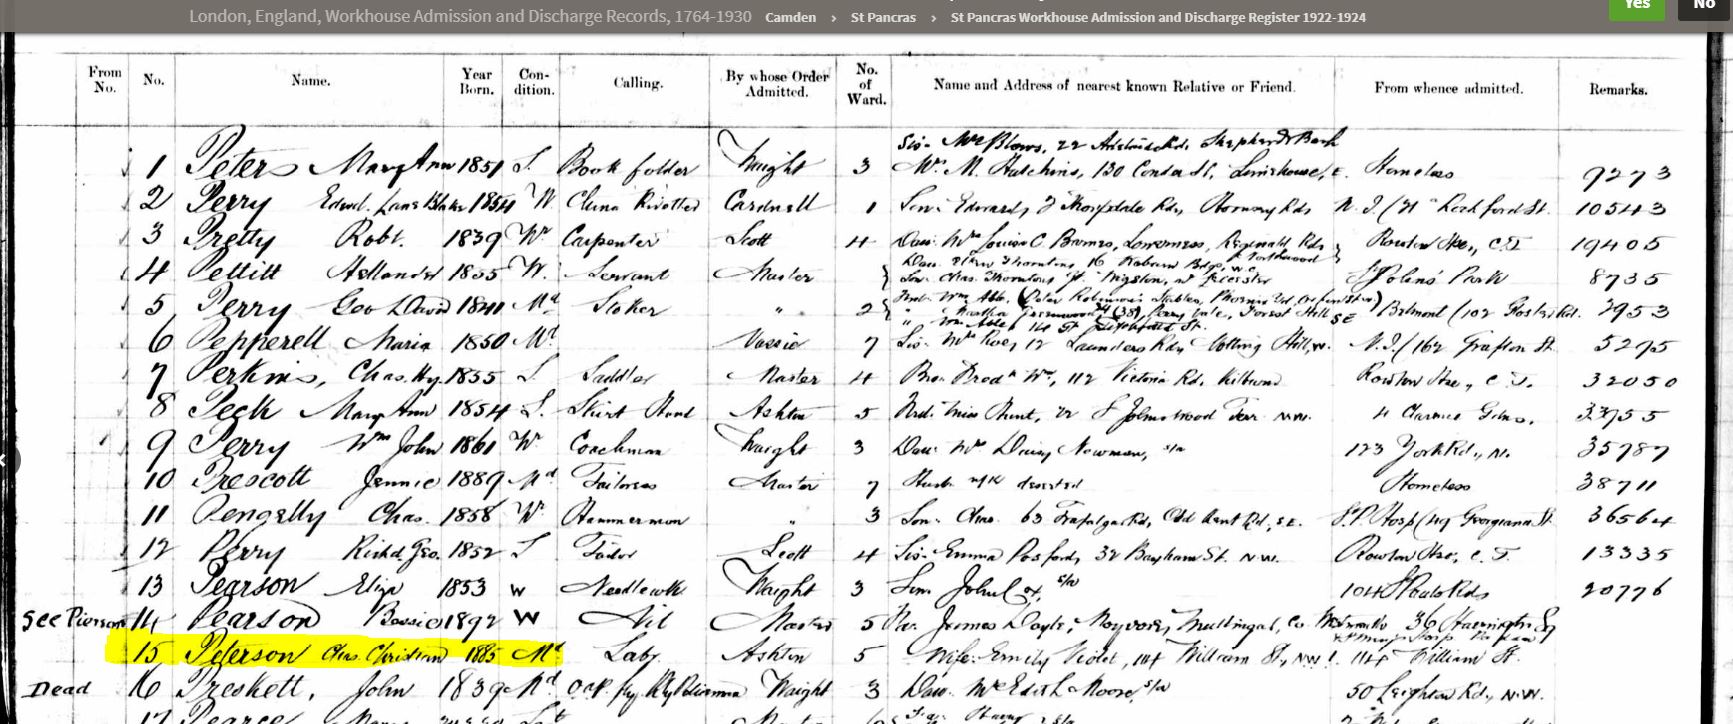 London, England, Workhouse Admission and Discharge Records, 1764-1930 Camden › St Pancras › St Pancras Workhouse Admission and Discharge Register 1922-1924 Yes No
From No. No. Name. Year Born. Con-dition. Calling. By whose Order Admitted. No. of Ward. Name and Address of nearest known Relative or Friend. From whence admitted. Remarks.
Sis. Mrs Blows, 22 Adelaide Rd. Shepherds Bush
1 Peters Mary Ann 1851 S. Book folder Waight 3 Mr. M. Hutchins, 130 St, Limehouse, E. Homeless 9273
2 Perry Edwd. Lane Blake 1854 W. China Rivetter Cardnell 1 Son: Edward, 7 Thorpdale Rd, Hornsey Rd N. I. (71 Rochford St. 10543
3 Pretty Robt. 1839 Wr Carpenter Scott 4 Dau: Mrs Louisa C. Barnes, Reginald Rd, Northwood Rowton Hse, C.T. 19405
4 Pettitt 1835 W. Servant Master Dau. Thornton, 16 Bdgs, W.C. St Johns Park 8735
Son: Chas. Thornton, Wigston, nr Leicester
5 Perry Geo David 1841 Md Stoker " 2 Wm Able, (Peter Robinson's Stables, Belmont (102 Rd. 3953
" Martha Greenwood, (38), Perry Vale, Forest Hill SE
" 14 St
6 Pepperell Maria 1850 Md Vassie 7 Sis. Mrs 12 Launders Rd, Notting Hill, W. N.I. (162 Grafton St. 5295
7 Perkins, Chas. Hy. 1855 S. Saddler Master 4 Bro: Fredk Wm, 112 Victoria Rd. Kilburn Rowton Hse, C.T. 32050
8 Peck Mary Ann 1854 S. Shirt Hand Ashton 5 Miss Hunt, 22 St Johns Wood Terr N.W. 4 Clarence Gdns. 33955
9 Perry Wm John 1861 Wr Coachman Waight 3 Dau: Mrs Daisy Newman, s/a 123 York Rd., N. 35787
10 Prescott Jennie 1889 Md Tailoress Master 7 Husb. n/k deserted Homeless 38711
11 Pengelly Chas. 1858 Wr Hammerman " 3 Son: Chas. 63 Trafalgar Rd, Old Kent Rd, S.E. S.P. Hosp (49 Georgiana St. 36564
12 Perry Richd Geo. 1852 S Tailor Scott 4 Sis: Emma Posford, 32 Bayham St. N.W. Rowton Hse, C.T. 13335
13 Pearson Eliza 1853 W Needlewk Waight 3 Son John s/a 104 St Pauls Rd 20776
See Pierson 14 Pearson Bessie 1892 W Nil Master 5 James Doyle, Mullingal, Co. 36
15 Peterson Chas. Christian 1885 Md Lab. Ashton 5 Wife: Emily Violet, 114 William St, N.W.1. 114 William St.
Dead 16 Preskett, John 1839 Md Waight 3 Dau. Mrs Edith Moore, s/a 50 Leighton Rd, N.W.
17 Pearce